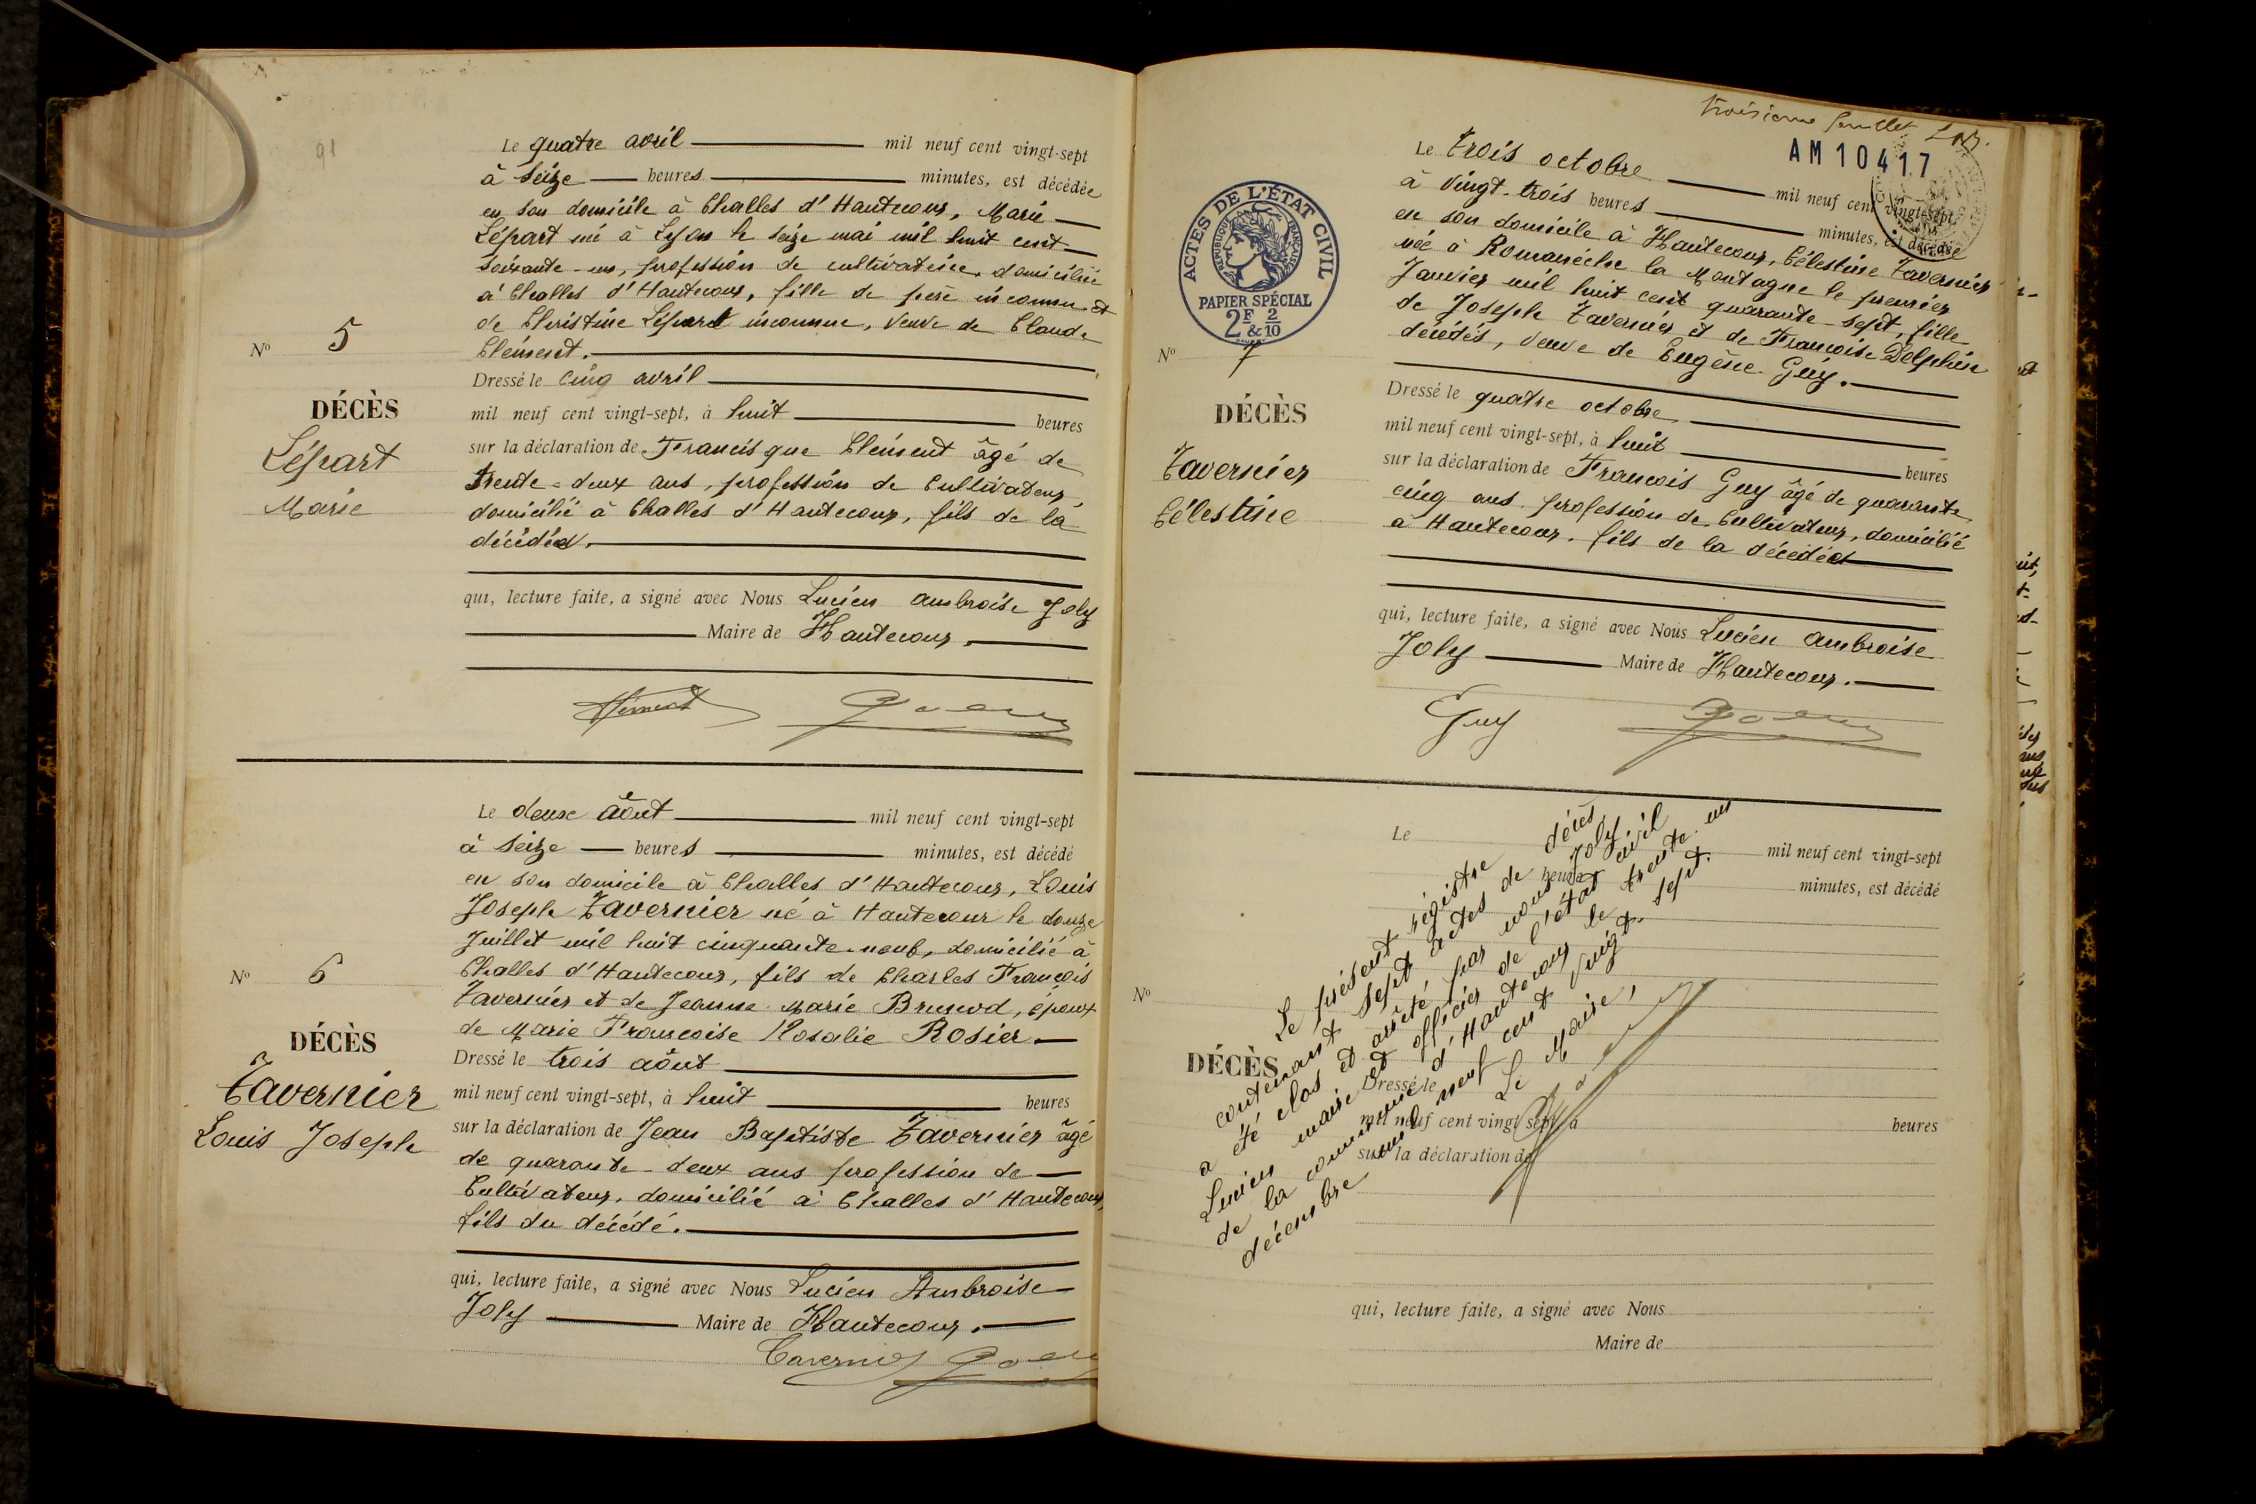 91
Le quatre avril mil neuf cent vingt-sept
à seize heures minutes, est décédée
en son domicile à Challes d'Hautecour, Marie
Lépart né à Lyon le seize mai mil huit cent
soixante-un, profession de cultivatrice, domiciliée
à Challes d'Hautecour, fille de père inconnu et
de Christine Lépart inconnue, veuve de Claude
Clément.
Nº 5
DÉCÈS
Lépart
Marie
Dressé le cinq avril
mil neuf cent vingt-sept, à huit heures
sur la déclaration de Francisque Clément âgé de
trente-deux ans, profession de Cultivateur,
domicilié à Challes d'Hautecour, fils de la
décédée.
qui, lecture faite, a signé avec Nous Lucien Ambroise Joly
Maire de Hautecour.
Clément Joly
Le deux Août mil neuf cent vingt-sept
à seize heures minutes, est décédé
en son domicile à Challes d'Hautecour, Louis
Joseph Tavernier né à Hautecour le douze
Juillet mil huit cinquante-neuf, domicilié à
Challes d'Hautecour, fils de Charles François
Tavernier et de Jeanne Marie Brunod, époux
de Marie Françoise Rosalie Rosier.
Nº 6
DÉCÈS
Tavernier
Louis Joseph
Dressé le trois août
mil neuf cent vingt-sept, à huit heures
sur la déclaration de Jean Baptiste Tavernier âgé
de quarante-deux ans profession de
Cultivateur, domicilié à Challes d'Hautecour,
fils du décédé.
qui, lecture faite, a signé avec Nous Lucien Ambroise
Joly Maire de Hautecour.
Tavernier Joly
troisième feuillet
AM10417
ACTES DE L'ÉTAT CIVIL
RÉPUBLIQUE FRANÇAISE
PAPIER SPÉCIAL
2F & 2/10
Le trois octobre mil neuf cent vingt-sept
à vingt-trois heures minutes, est décédée
en son domicile à Hautecour, Célestine Tavernier
née à Romanèche la Montagne le premier
Janvier mil huit cent quarante-sept, fille
de Joseph Tavernier et de Françoise Delphin
décédés, veuve de Eugène Guy.
Nº 7
DÉCÈS
Tavernier
Célestine
Dressé le quatre octobre
mil neuf cent vingt-sept, à huit heures
sur la déclaration de François Guy âgé de quarante
cinq ans profession de Cultivateur, domicilié
à Hautecour, fils de la décédée
qui, lecture faite, a signé avec Nous Lucien Ambroise
Joly Maire de Hautecour.
Guy Joly
Le mil neuf cent vingt-sept
heures minutes, est décédé
Nº
DÉCÈS
Dressé le
mil neuf cent vingt-sept, à heures
sur la déclaration de
qui, lecture faite, a signé avec Nous
Maire de
Le présent régistre décès,
contenant sept actes de décès
a été clos et arrêté par nous Joly
Lucien maire et officier de l'état civil
de la commune d'Hautecour le trente-un
décembre mil neuf cent vingt-sept.
Le Maire,
Joly